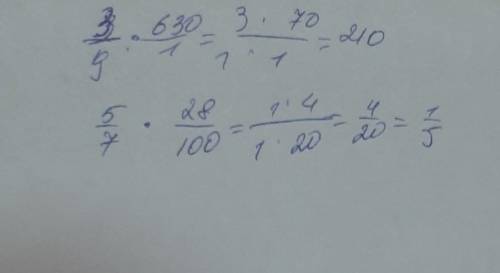 3/9 · 630/1 = 3 · 70/1 · 1 = 210
5/7 · 28/100 = 1 · 4/1 · 20 = 4/20 = 1/5